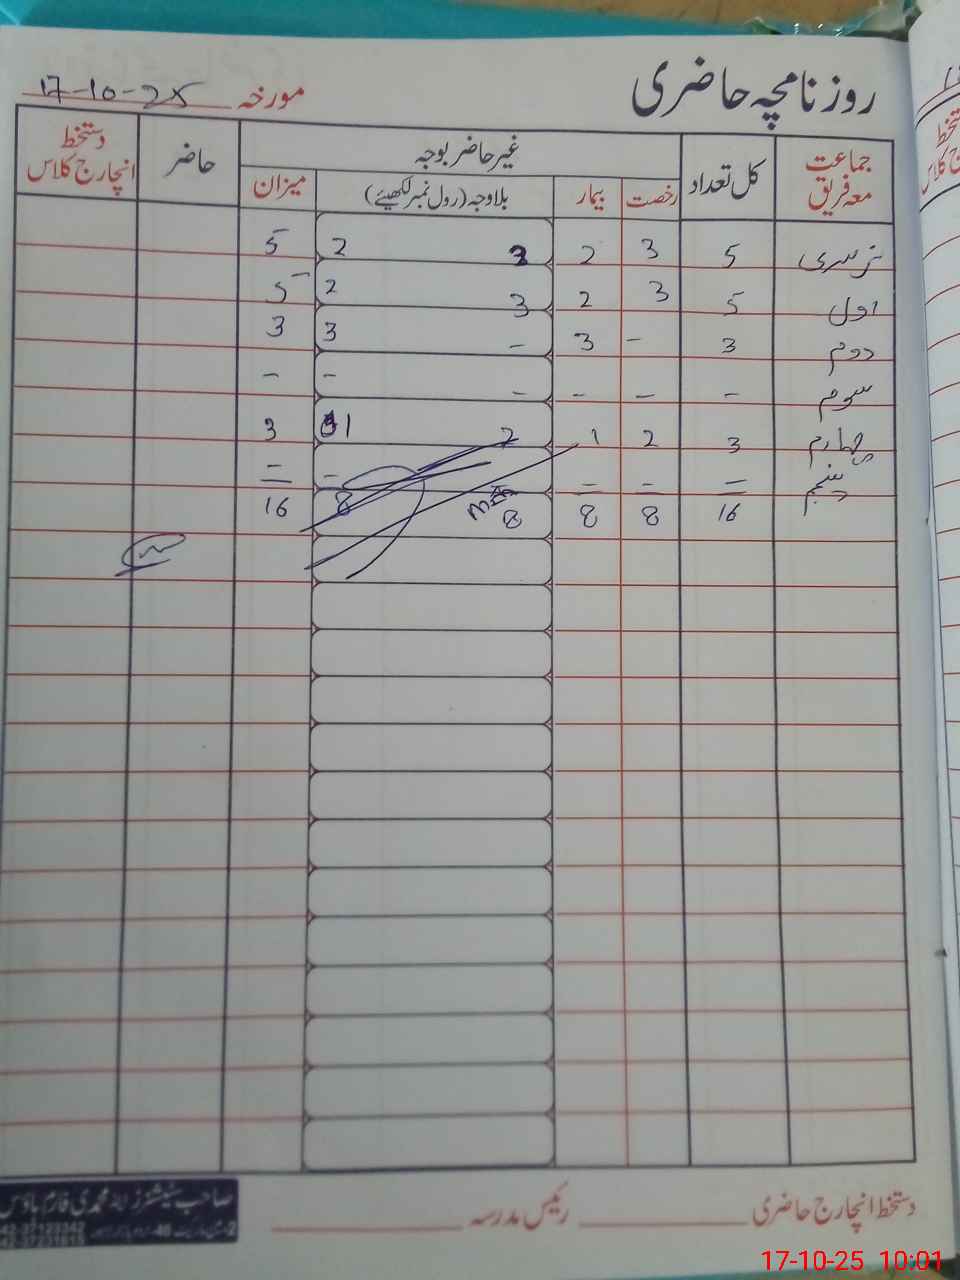 روزنامچہ حاضری
مورخہ 17-10-25
جماعت معہ فریق کل تعداد غیر حاضر بوجہ حاضر دستخط انچارج کلاس
رخصت بیمار بلاوجہ (رول نمبر لکھیئے) میزان
نرسری 5 3 2 3 2 5
اول 5 3 2 3 2 5
دوم 3 - 3 - 3 3
سوم - - - - - -
چہارم 3 2 1 2 1 3
پنجم - - - - - -
16 8 8 8 8 16
دستخط انچارج حاضری رئیس مدرسہ
17-10-25 10:01